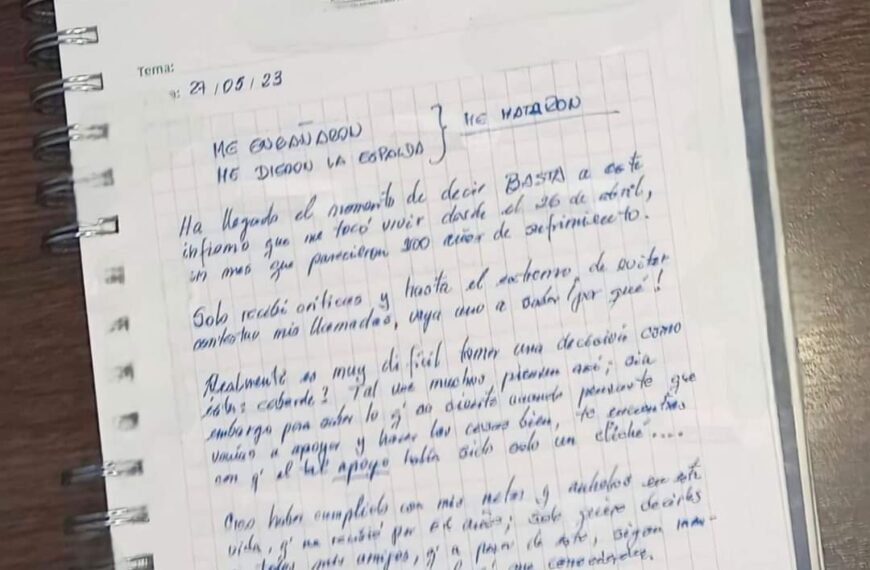 Tema:
27/05/23
ME ENGAÑARON
ME DIERON LA ESPALDA } ME MATARON
Ha llegado el momento de decir BASTA a este
infierno que me tocó vivir desde el 26 de abril,
un mes que parecieron 100 años de sufrimiento.
Solo recibí críticas y hasta el extremo, de evitar
contestar mis llamadas, vaya uno a saber ¡por qué!
Realmente es muy difícil tomar una decisión como
ésta; cobarde? Tal vez muchos, piensen así; sin
embargo para saber lo q' se siente cuando pensaste que
venían a apoyar y hacer las cosas bien, te encuentras
con q' el tal apoyo había sido solo un cliché....
Creo haber cumplido con mis metas y anhelos en esta
vida, q' me recibió por años; solo quiero decirles
a todos mis amigos, q' a pesar de esto, sigan